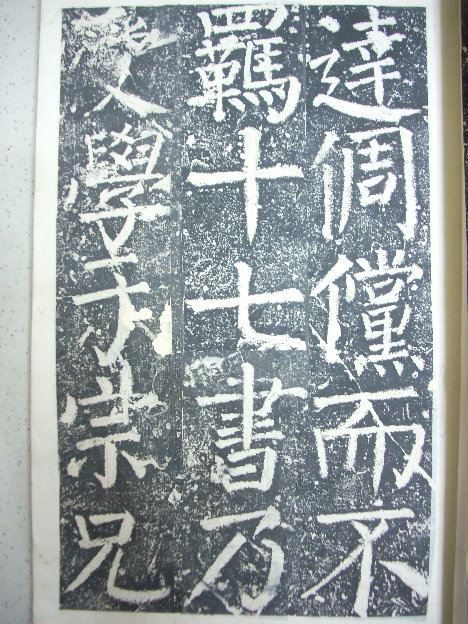 達倜儻而不
羈十七書乃
受學於宗兄